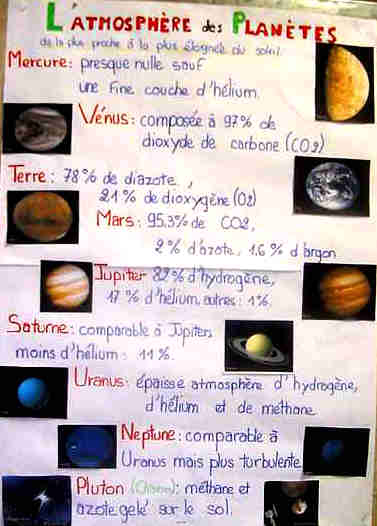 L'ATMOSPHÈRE des PLANÈTES
de la plus proche à la plus éloignée du soleil
Mercure: presque nulle sauf
une fine couche d'hélium.
Vénus: composée à 97% de
dioxyde de carbone (CO2)
Terre: 78% de diazote,
21% de dioxygène (O2)
Mars: 95,3% de CO2,
2% d'azote, 1.6% d'argon
Jupiter 82% d'hydrogène,
17% d'hélium, autres: 1%.
Saturne: comparable à Jupiter,
moins d'hélium: 11%.
Uranus: épaisse atmosphère d'hydrogène,
d'hélium et de méthane
Neptune: comparable à
Uranus mais plus turbulente
Pluton (Charon): méthane et
azote gelé sur le sol.